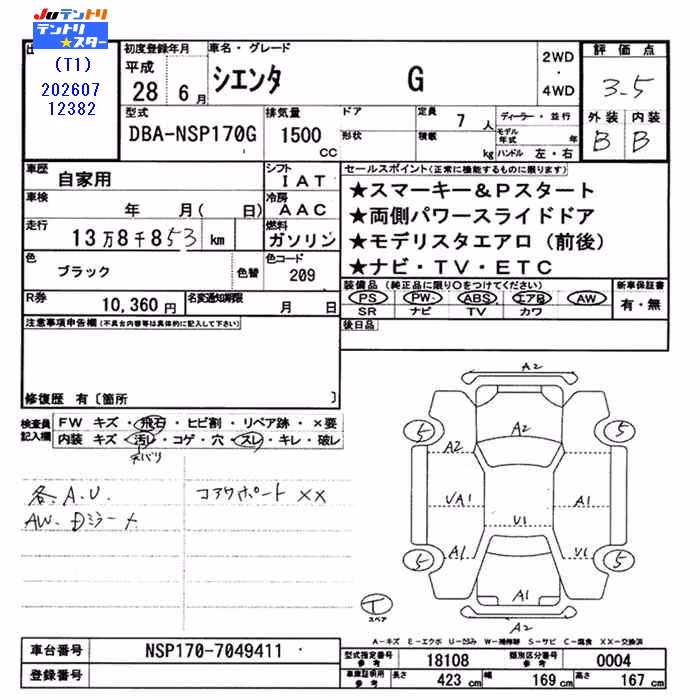 Juテントリ
テントリ★スター
(T1)
202607
12382
初度登録年月
平成
28 6月
車名・グレード
シエンタ G
2WD
・
4WD
評価点
3.5
外装 内装
B B
型式
DBA-NSP170G
排気量
1500
CC
ドア
形状
定員
7 人
積載
kg
ディーラー・並行
モデル年式 年
ハンドル 左・右
車歴
自家用
シフト
IAT
車検
年 月( 日)
冷房
AAC
走行
13万8千853 km
燃料
ガソリン
色
ブラック
色替
色コード
209
R券
10,360円
名変通知期限
月 日
セールスポイント(正常に機能するものに限ります)
★スマーキー&Pスタート
★両側パワースライドドア
★モデリスタエアロ(前後)
★ナビ・TV・ETC
装備品(純正品に限り○をつけてください)
PS PW ABS エアB AW
SR ナビ TV カワ
新車保証書
有・無
後日品
注意事項申告欄(不具合内容等は具体的に記入して下さい)
修復歴 有〔箇所 〕
検査員記入欄
FW キズ・飛石・ヒビ割・リペア跡・×要
内装 キズ・汚レ・コゲ・穴・スレ・キレ・破レ
各、A.U.
AW、Dミラーナ
コアサポート ××
A2
A2
5
5
A2
UA1
A1
U1
A1
U1
5
5
A1
A2
T
スペア
A-キズ E-エクボ U-凹み W-補修跡 S-サビ C-腐食 XX-交換済
車台番号
NSP170-7049411
登録番号
型式指定番号
参考
18108
類別区分番号
参考
0004
車庫証明用
参考
長さ 423 cm
幅 169 cm
高さ 167 cm